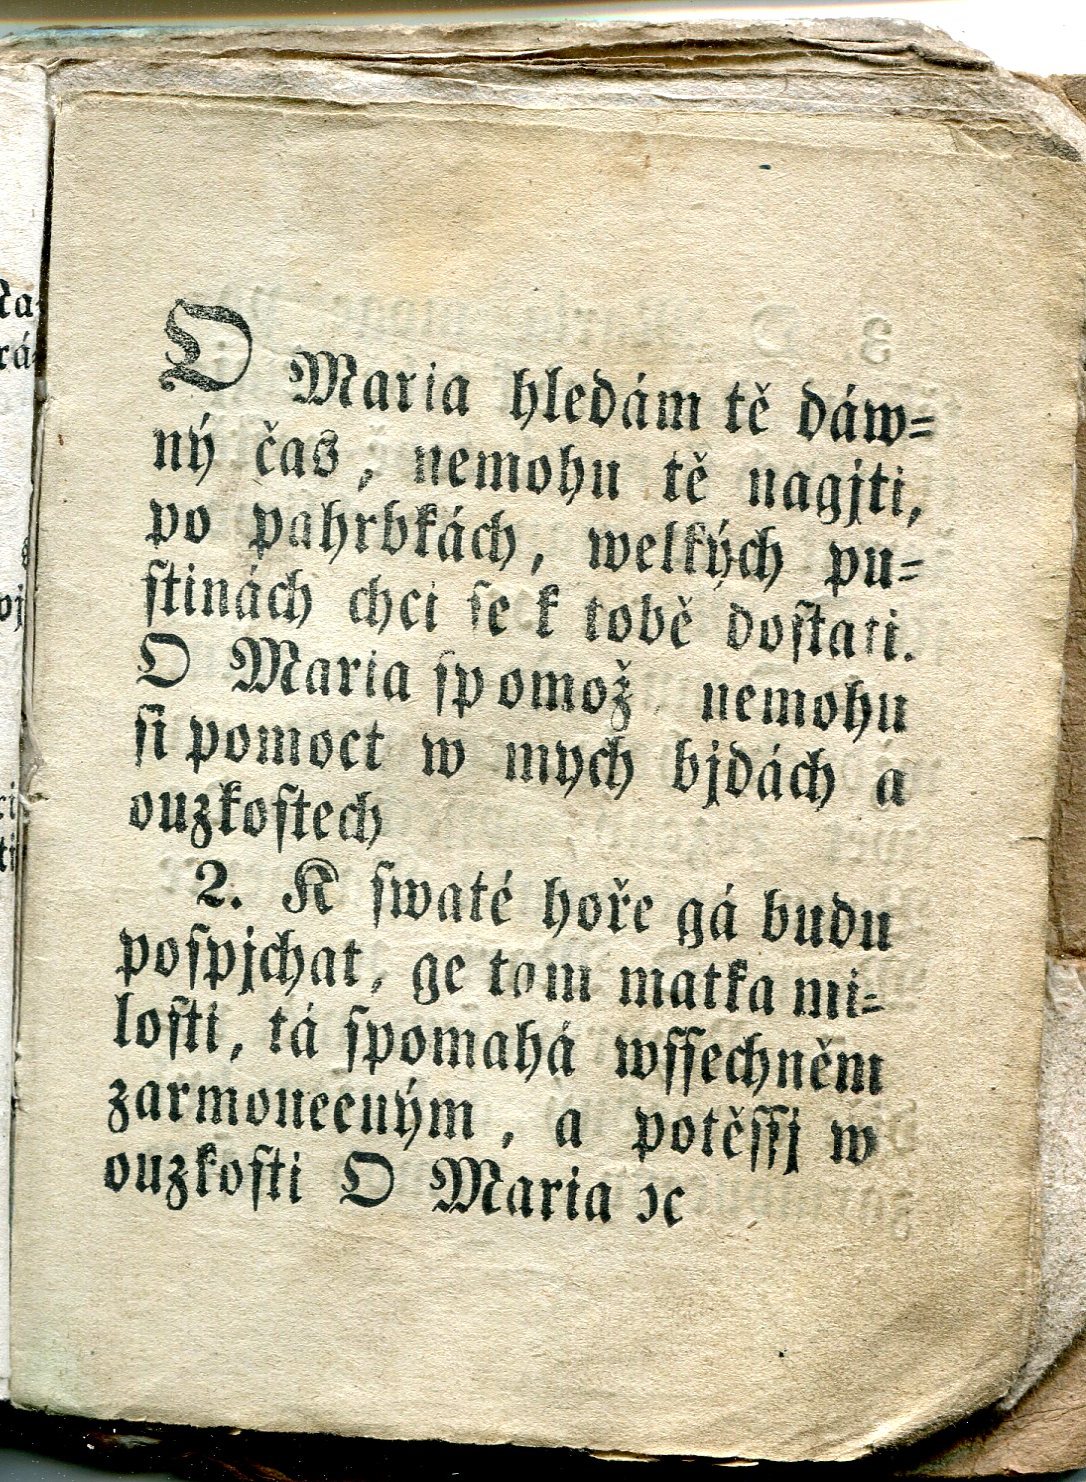 O Maria hledám tě dáw=
ný čas, nemohu tě nagjti,
po pahrbkách, welkých pu=
stinách chci se k tobě dostati.
O Maria spomož nemohu
si pomoct w mych bjdách a
ouzkostech
2. K swaté hoře gá budu
pospjchat, ge tam matka mi=
losti, tá spomahá wssechněm
zarmouceným, a potěssj w
ouzkosti O Maria ꝛc